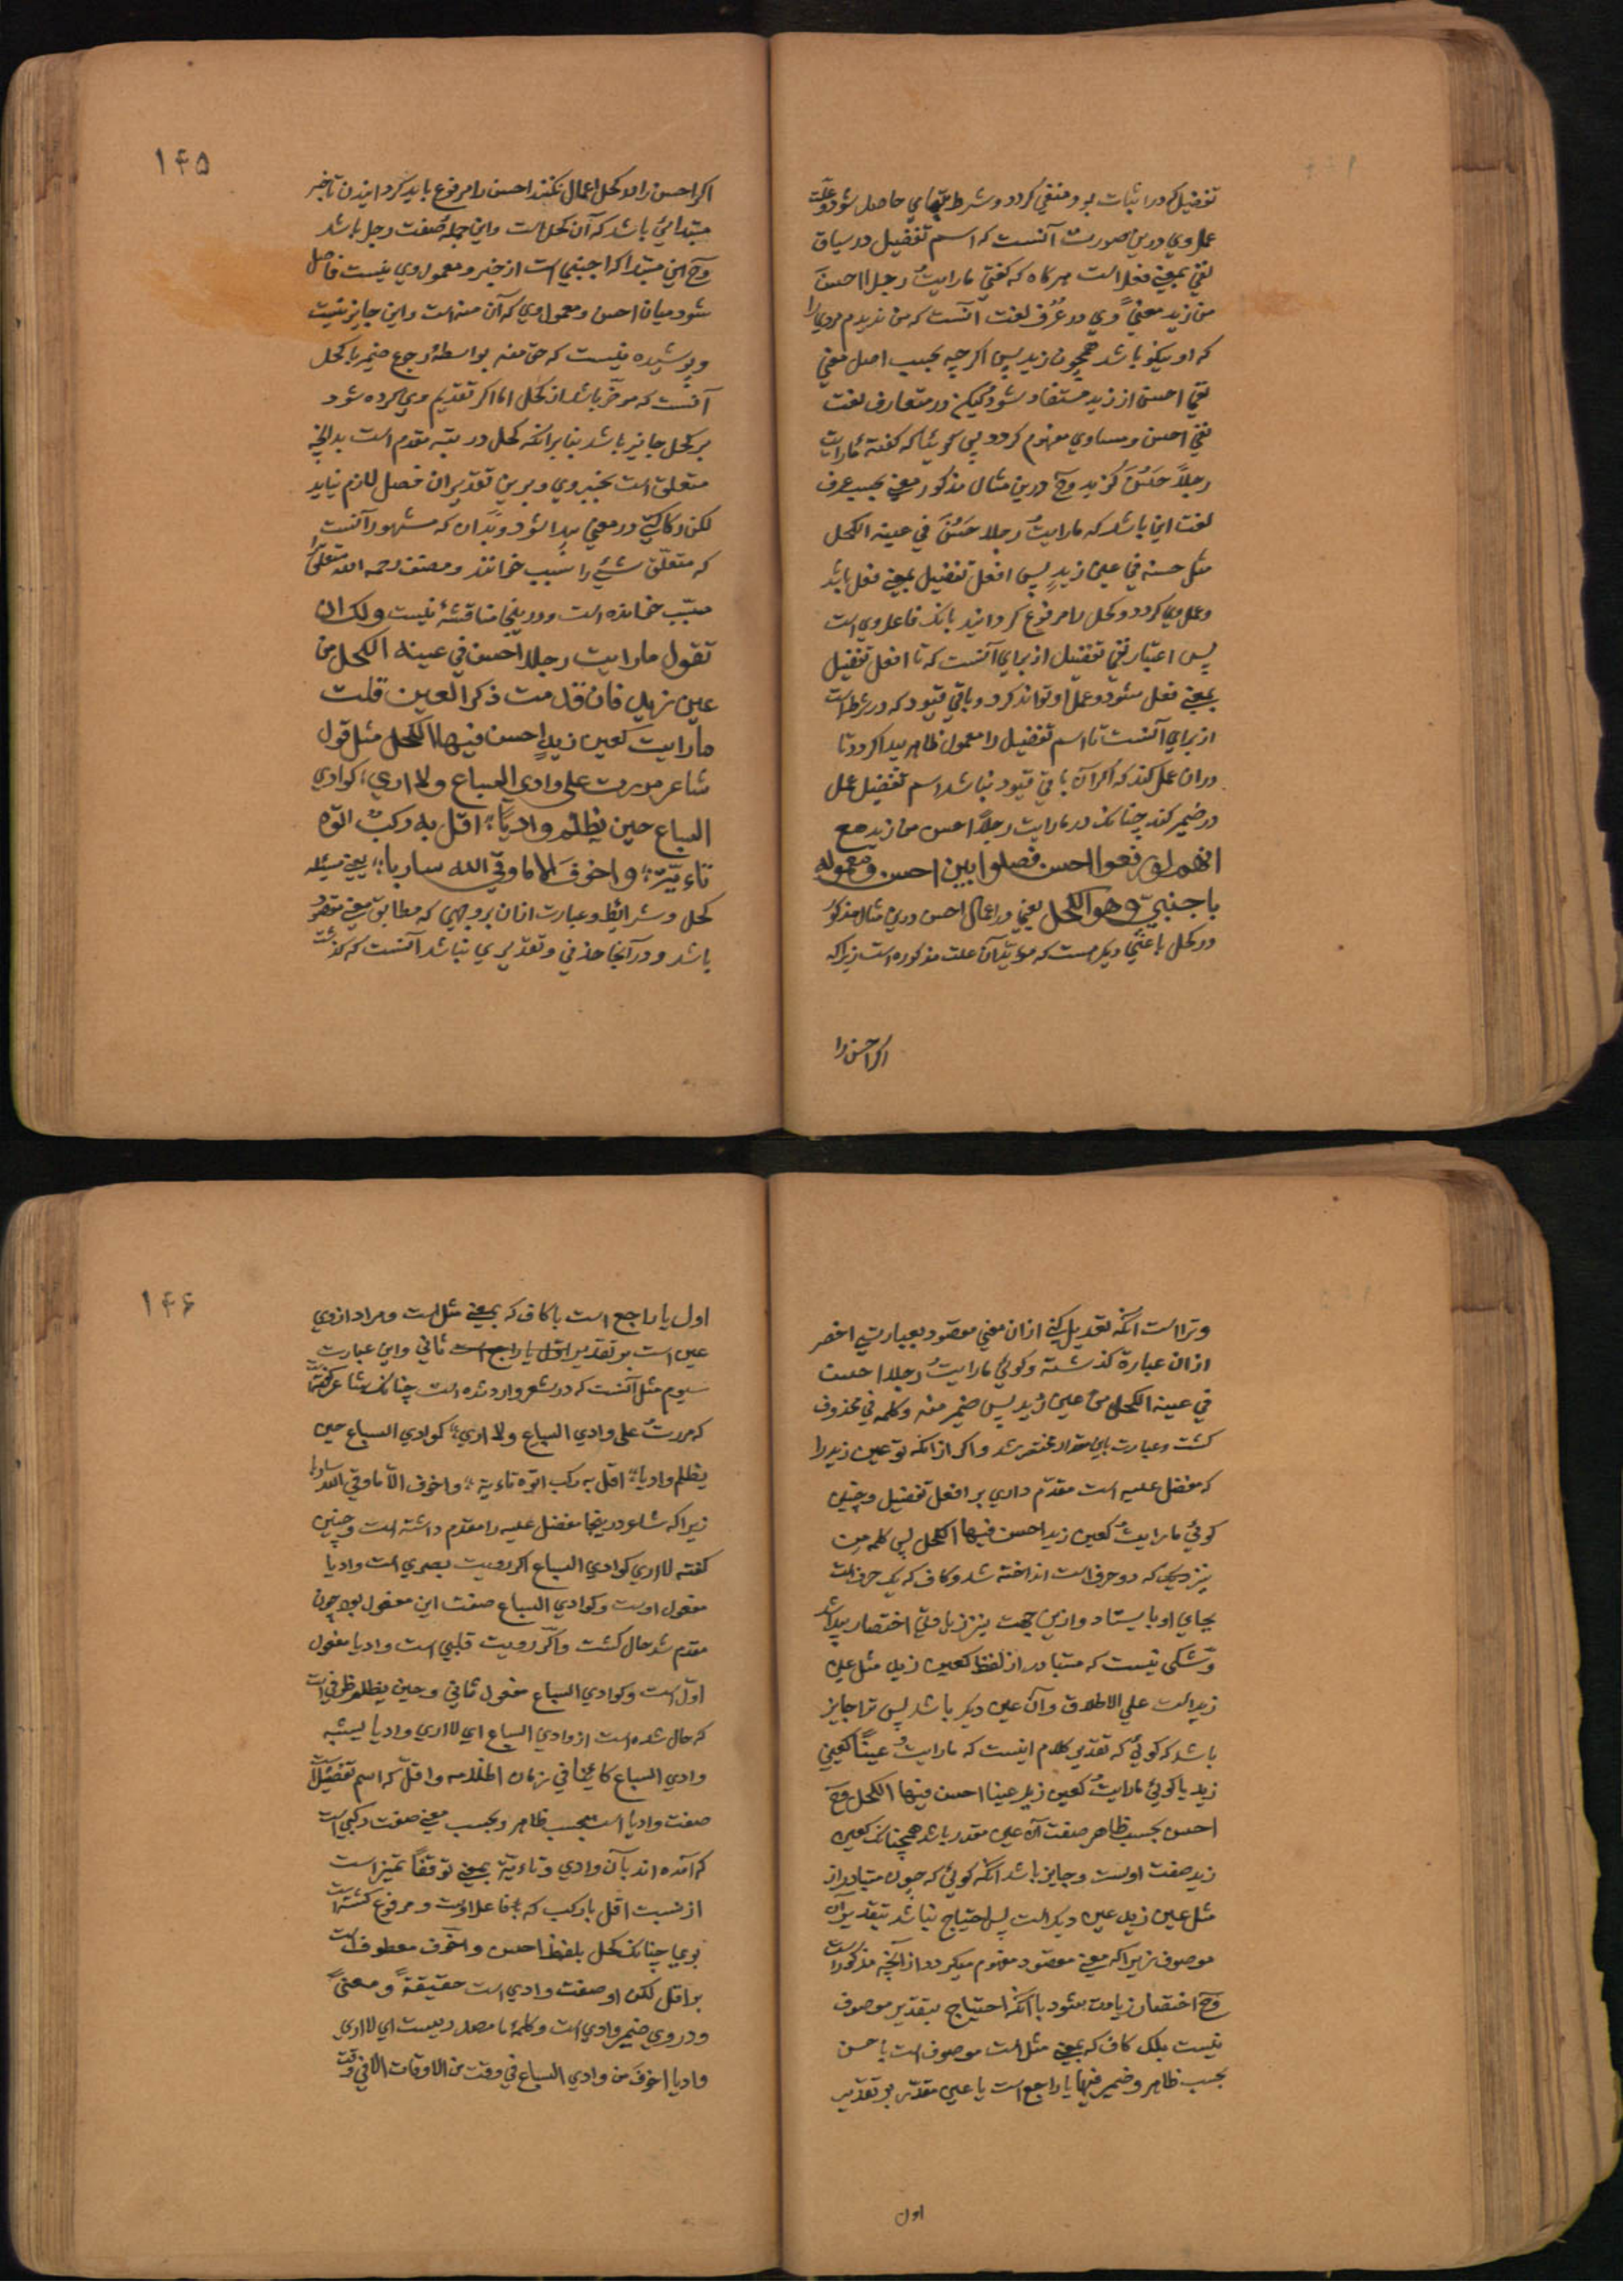 تفضیل که در اثبات بود منفی گردد و شرط بتمامی حاصل شود و علّت
عمل وی درین صورت آنست که اسم تفضیل در سیاق
نفی بمعنی فعل است هرگاه که گفتی ما رایتُ رجلا احسنَ
من زید معنیً وی در عُرف لغت آنست که من ندیدم مردی را
که او نیکو باشد همچون زید پس اگرچه بحسب اصل معنی
نفی احسن از زید مستفاد شود لیکن در متعارف لغت
نفی احسن و مساوی مفهوم گردد پس گوئیا که گفتهٔ ما رایت
رجلاً حَسُنَ کزید وح درین مثال مذکور معنی بحسب عرف
لغت این باشد که ما رایتُ رجلا حَسُنَ فی عینه الکحل
مثل حسنه فی عین زیدٍ پس افعل تفضیل بمعنی فعل باشد
و عمل وی کردد و کحل را مرفوع گرداند بانک فاعل وی است
پس اعتبار نفی تفضیل از برای آنست که تا افعل تفضیل
بمعنی فعل شود و عمل او تواند کرد و باقی قیود که در شرط است
از برای آنست تا اسم تفضیل را معمول ظاهر پیدا گردد تا
در ان عمل کند که اگر آن باقی قیود نباشد اسم تفضیل عمل
در ضمیر کند چنانک در ما رایت رجلاً احسن من زید مع
انهم لو رفعوا احسن فصلوا بین احسن و معموله
باجنبیّ و هو الکحل یعنی در اعمال احسن درین مثال مذکور
در کحل باعثی دیگر هست که مؤید آن علت مذکوره است زیرا که
اگر احسن را
۱۴۵
اگر احسن را در کحل اعمال نکنند احسن را مرفوع باید گردانیدن تا خبر
مبتدائی باشد که آن کحل است و این جمله صفت رجل باشد
وح این مبتدا که اجنبی است از خبر و معمول وی نیست فاصل
شود میان احسن و معمول وی که آن منه است و این جایز نیست
و پوشیده نیست که حق منه بواسطهٔ رجوع ضمیر با کحل
آنست که مؤخّر باشد از کحل اما اگر تقدیم وی کرده شود
بر کحل جایز باشد بنا بر انکه کحل در رتبه مقدم است بدانچه
متعلق است بخبر وی و برین تقدیر ان فصل لازم نیاید
لکن رکاکتی در معنی پیدا شود و بدان که مشهور آنست
که متعلّق شیٔ را سبب خوانند و مصنف رحمه الله متعلق را
مسبّب خوانده است و درینجا مناقشهٔ نیست ولک ان
تقول ما رایت رجلا احسن فی عینه الکحل من
عین زید فان قدمت ذکر العین قلت
ما رایت کعین زیدٍ احسن فیها الکحل مثل قول
شاعر مررت علی وادی السباع ولا اری؛ کوادی
السباع حین یظلم وادیًا؛ اقل به رکبٌ اتوه
تاءیّة؛ واخوف الا ما وقی الله ساریا؛ یعنی مسئله
کحل و شرایط و عبارت از ان بروجهی که مطابق معنی مقصود
باشد و در آنجا حذفی و تقدیری نباشد آنست که گذشت
و ترا است آنکه تعدیل کنی از ان معنی مقصود بعبارتی اخصر
از ان عبارة گذشته و گوئی ما رایتُ رجلا احسن
فی عینه الکحل من عین زید پس ضمیر منه و کلمه فی محذوف
گشت و عبارت باین مقدار مختصر شد و اگر از انکه تو عین زید را
که مفضل علیه است مقدّم داری بر افعل تفضیل و چنین
گوئی ما رایتُ کعین زید احسن فیها الکحل پس کلمه من
نیز دیگر که دو حرفست انداخته شد و کاف که یک حرف است
بجای او بایستاد و ازین جهت نیز زیادتی اختصار پیدا شد
و شکی نیست که متبادر از لفظ کعین زید مثل عین
زید است علی الاطلاق و آن عین دیگر باشد پس ترا جایز
باشد که گوئی که تقدیر کلام اینست که ما رایتُ عیناً کعین
زید یا گوئی ما رایتُ کعین زید عینا احسن فیها الکحل وح
احسن بحسب ظاهر صفت آن عین مقدر باشد همچنانک کعین
زید صفت اوست و جایز باشد آنکه گوئی که چون متبادر از
مثل عین زید عین دیگر است پس احتیاج نباشد بتقدیر آن
موصوف زیرا که معنی مقصود مفهوم میگردد از آنچه مذکور است
وح اختصار زیادت بشود باآنکه احتیاج بتقدیر موصوف
نیست بلک کاف که بمعنی مثل است موصوف است باحسن
بحسب ظاهر و ضمیر فیها یا راجع است یا عین مقدّر بر تقدیر
اول
۱۴۶
اول یا راجع است با کاف که بمعنی مثل است و مراد از وی
عین است بر تقدیر ثانی و این عبارت
سیوم مثل آنست که در شعر وارد شده است چنانک شاعر گفته
که مررتُ علی وادی السباع ولا اری؛ کوادی السباع حین
یظلم وادیا؛ اقل به رکب اتوه تاءیة؛ واخوف الا ما وقی الله ساریا
زیرا که شاعر درینجا مفضل علیه را مقدم داشته است و چنین
گفته لا اری کوادی السباع اگر رویت بصری است وادیا
مفعول اوست و کوادی السباع صفت این مفعول بود چون
مقدم شد حال گشت و اگر رویت قلبی است وادیا مفعول
اوّل است و کوادی السباع مفعول ثانی و حین یظلم ظرفی است
که حال شده است از وادی السباع ای لا اری وادیا یشبه
وادی السباع کائنا فی زمان اظلامه و اقلّ که اسم تفضیل است
صفت وادیا است بحسب ظاهر و بحسب معنی صفت رکبی است
که آمده اند بآن وادی و تاءیّة بمعنی توقفاً تمیز است
از نسبت اقل با رکب که فاعل اوست و مرفوع گشته است
بوی چنانک کحل بلفظ احسن و اخوف معطوف است
بر اقل لکن او صفت وادی است حقیقةً و معنیً
و در وی ضمیر وادی است و کلمهٔ ما مصدریست ای لا اری
وادیا اخوفَ من وادی السباع فی وقت من الاوقات الا فی وقت